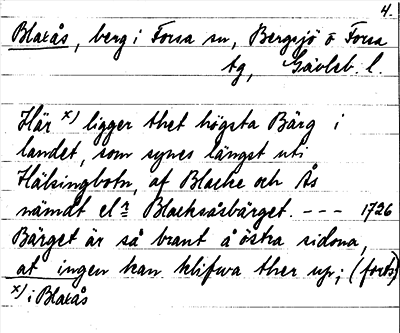 4.
Blakås, berg i Forsa sn, Bergsjö o Forsa
tg, Gävleb. l.
Här x) ligger thet högsta Bärg i
landet, som synes längst uti
Hälsingbotn, af Blacke och Ås
nämdt el r Blackåsbärget. --- 1726
Bärget är så brant å östra sidona,
at ingen kan klifwa ther up; (forts)
x) i Blakås